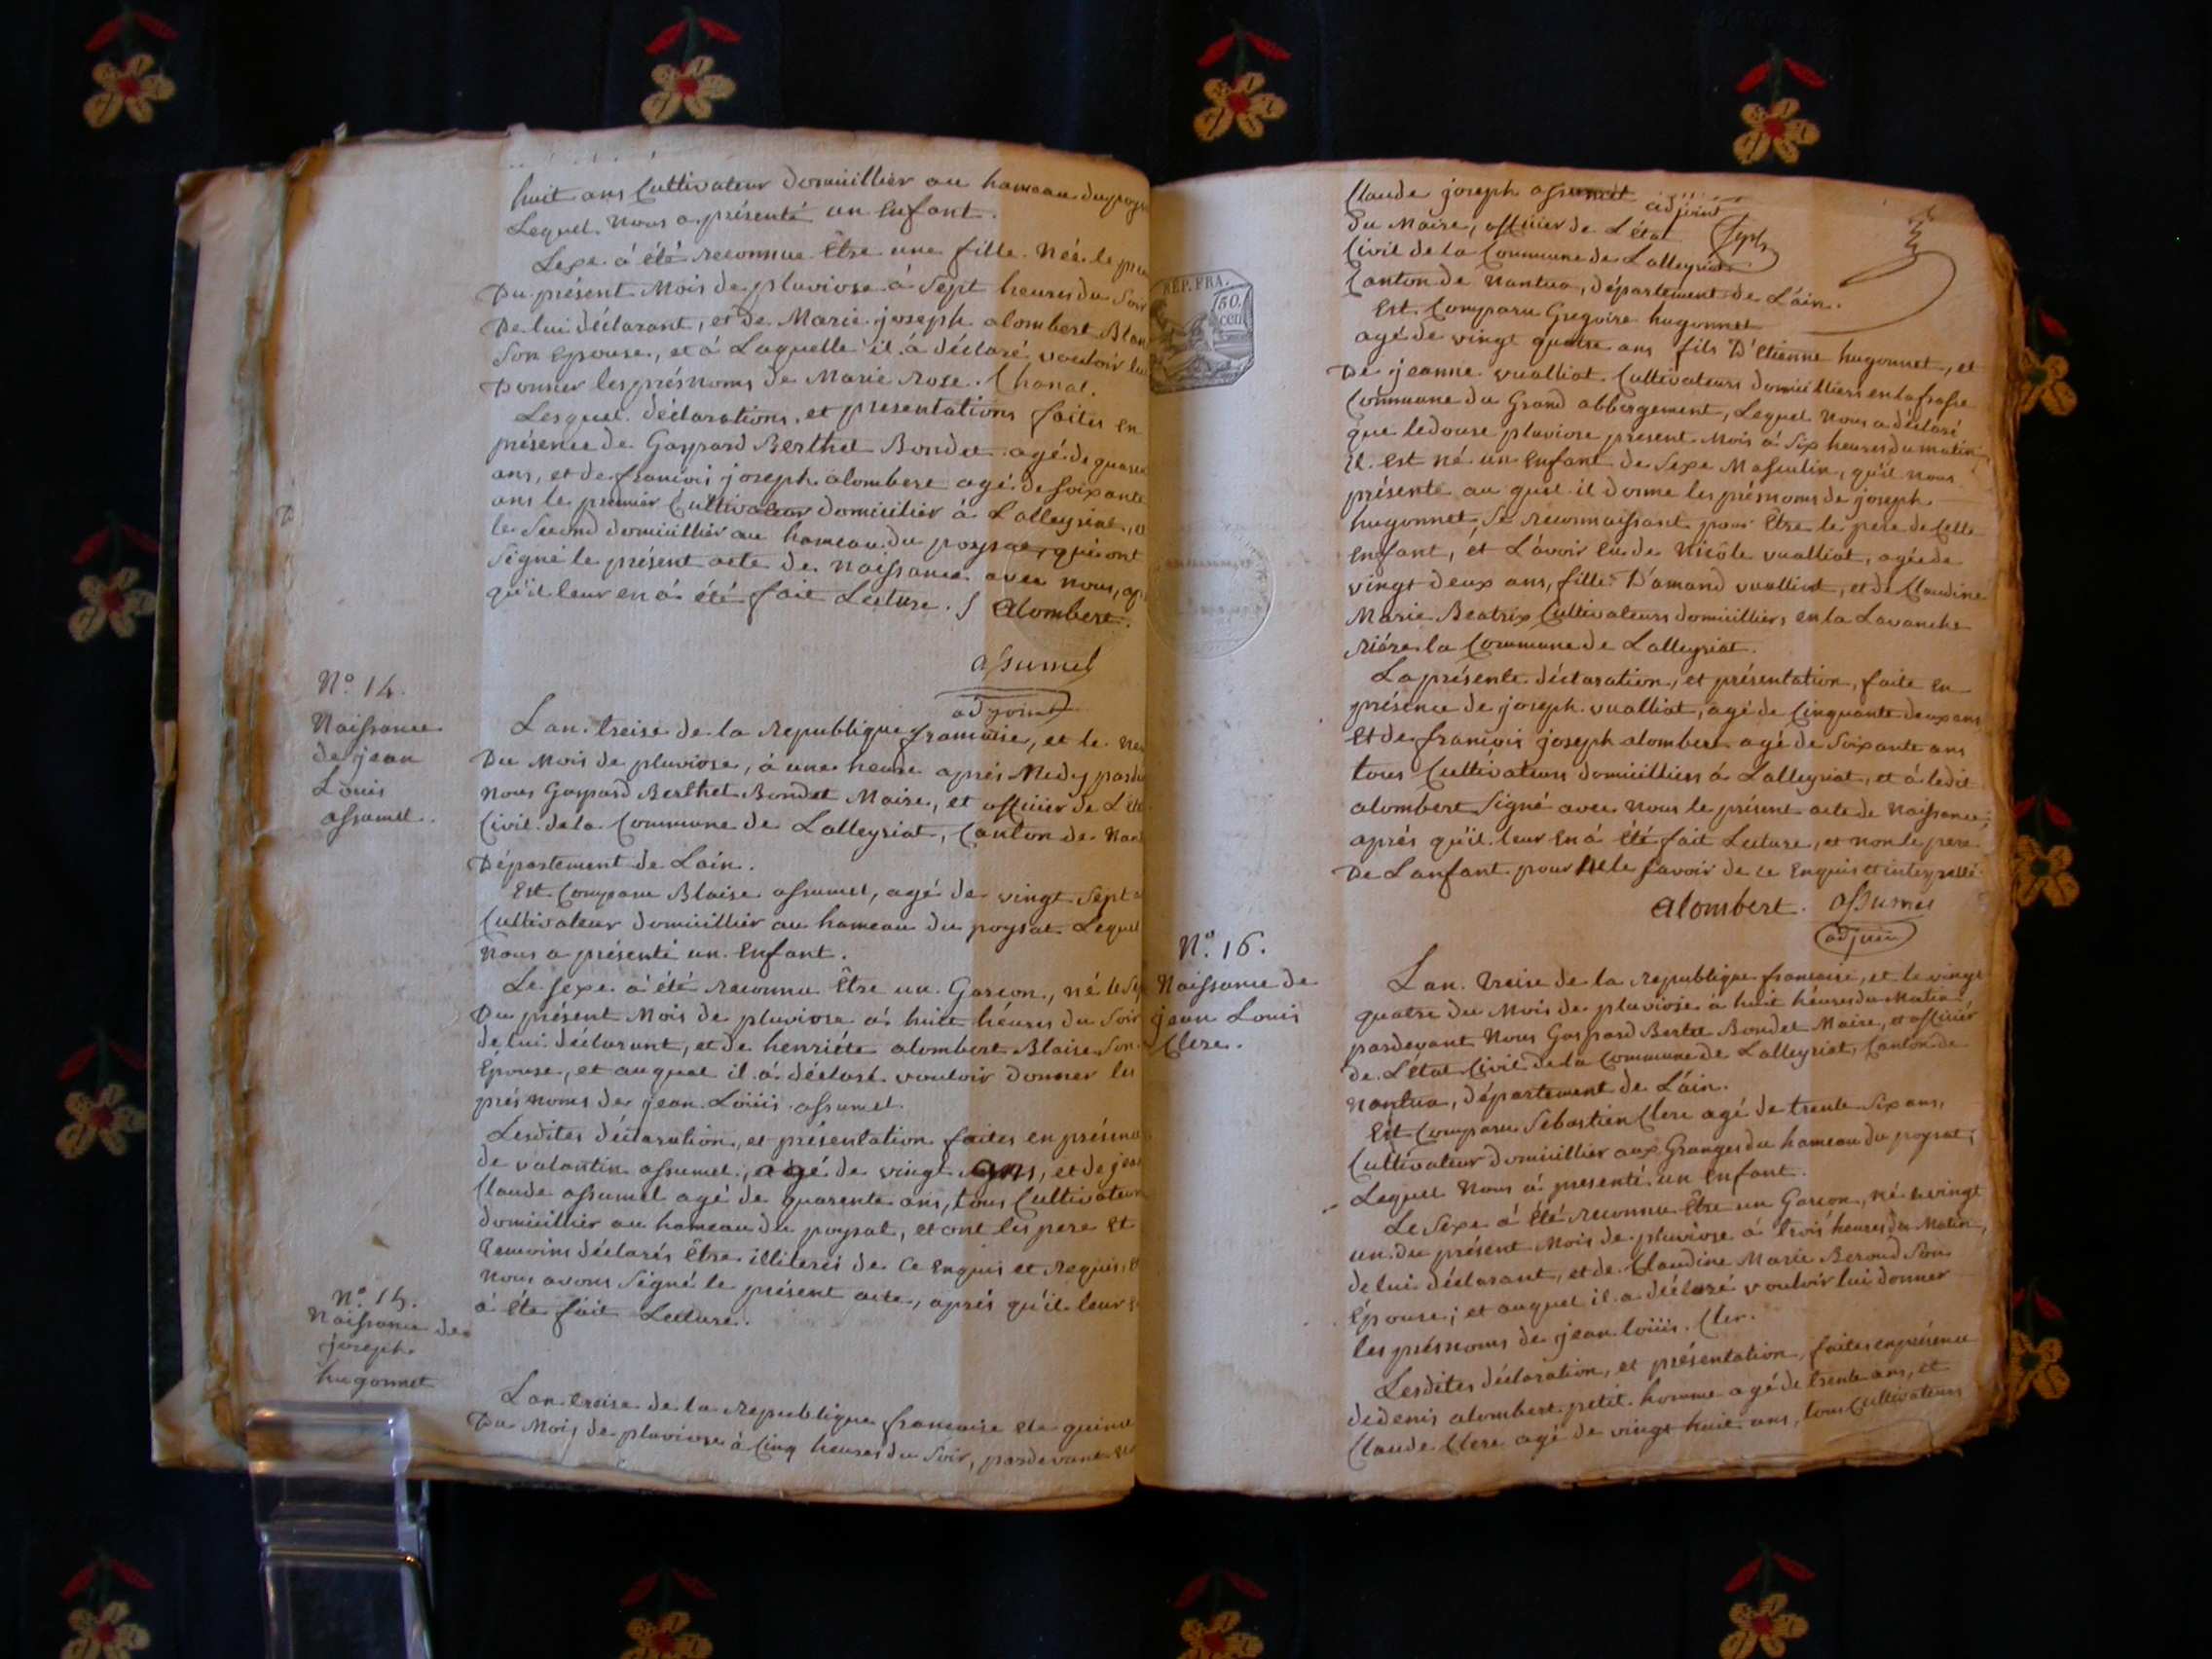 huit ans Cultivateur domicillier au hameau du poysa
Lequel Nous a présenté un Enfant.
Sexe à été reconnue Être une fille Née le
Du présent Mois de pluviose à Sept heures du Soir
De lui déclarant, et de Marie joseph alombert Blan
Son Epouse, et à Laquelle il à déclaré vouloir lui
Donner les présnoms de Marie Rose Chanal.
Lesquel déclarations et presentations faites en
présence de Gaspard Berthet Bondet agé de quaran
ans, et de françois joseph alombert agé de soixante
ans le premier Cultivateur domicilier à Lalleyriat, et
le Second domicillier au hameau du poysat, qui ont
Signé le présent acte de Naissance avec nous, ap
qu'il leur en à été fait Lecture. Alombert.
assumel
adjoint
N.º 14.
Naissance
de jean
Louis
assumel.
Lan treise de la Republique francaise, et le
Du Mois de pluviose, à une heure aprés Midy pard
Nous Gaspard Berthet Bondet Maire, et officier de L'ét
Civil de la Commune de Lalleyriat, Canton de Nan
Département de Lain.
Est Comparu Blaise assumel, agé de vingt Sept a
Cultivateur domicillier au hameau du poysat Lequel
Nous a présenté un Enfant.
Le sexe à été reconnu Être un Garcon, né le Se
Du présent Mois de pluviose à huit heures du Soir
de lui déclarant, et de henriéte alombert Blaise Son
Épouse, et auquel il à déclaré vouloir donner les
présnoms de jean Loüis assumel.
Lesdites déclaration, et présentation faites en présence
de valantin assumel, agé de vingt ans, et de jean
Claude assumel agé de quarente ans, tous Cultivateurs
domicillier au hameau du poysat, et ont les pere et
temoins déclarés Être illiterés de Ce Enquis et Requis, et
Nous avons Signé le présent acte, aprés qu'il leur e
à Été fait Lecture.
N.º 15.
Naissance de
joseph
hugonnet
Lan treise de la Republique francaise et le quinze
Du Mois de pluviose à Cinq heures du Soir, pardevant
Claude joseph assumel adjoint
Du Maire, officier de L'état
Civil de la Commune de Lalleyriat
Canton de Nantua, département de L'ain.
Est Comparu Gregoire hugonnet
agé de vingt quatre ans fils D'Etienne hugonnet, et
De jeanne vualliat Cultivateurs domicilliers en la
Commune du Grand abbergement, Lequel Nous a déclaré
que le douse pluviose present Mois à Six heures du matin,
il est né un Enfant de Sexe Masculin, qu'il nous
présente au quel il donne les présnoms de joseph
hugonnet, Se reconnaissant pour Être le pere de Cette
Enfant, ét L'avoir Eu de Nicole vualliat, agée de
vingt deux ans, fille D'amand vualliat, et de Claudine
Marie Beatrix Cultivateurs domicilliers en la Lavanche
riére la Commune de Lalleyriat.
La présente déclaration, et présentation, faite en
présence de joseph vualliat, agé de Cinquante deux ans
Et de francois joseph alombert agé de Soixante ans
tous Cultivateurs domicilliers à Lalleyriat, et à ledit
alombert Signé avec Nous le présent acte de Naissance;
aprés qu'il leur en à Été fait Lecture, et non le pere
De Lanfant pour Ne le savoir de ce Enquis et interpellé.
Alombert. assumel
adjoint
RÉP. FRA.
50.
cen
N.º 16.
Naissance de
jean Louis
Clere.
Lan treise de la Republique francaise, et le vingt
quatre du Mois de pluviose à huit héures du Matin,
pardevant Nous Gaspard Bertet Bondet Maire, et officier
de L'état Civil de la Commune de Lalleyriat, Canton de
Nantua, département de L'ain.
Est Comparu Sébastien Clere agé de trente Six ans,
Cultivateur domicillier aux Granges du hameau du poysat,
Lequel Nous à présenté un Enfant.
Le Sexe à Été reconnu Être un Garcon, né le vingt
un du présent Mois de pluviose à trois heures du Matin,
de lui déclarant, et de Claudine Marie Beroud Son
Épouse; et auquel il a déclaré vouloir lui donner
les présnoms de jean loüis Cler.
Lesdites déclaration, et présentation, faites en présence
de denis alombert petit homme agé de trente ans, et
Claude Clere agé de vingt huit ans, tous Cultivateurs